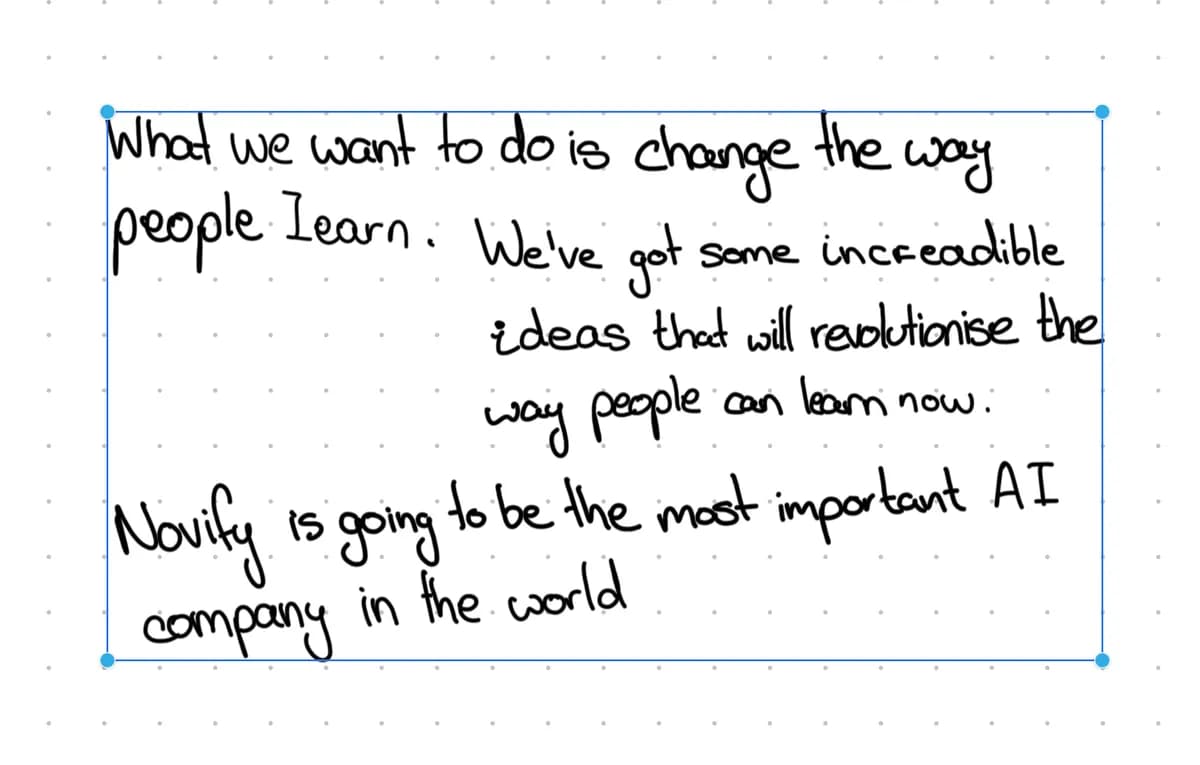 What we want to do is change the way
people learn. We've got some increadible
ideas that will revolutionise the
way people can learn now.
Novify is going to be the most important AI
company in the world